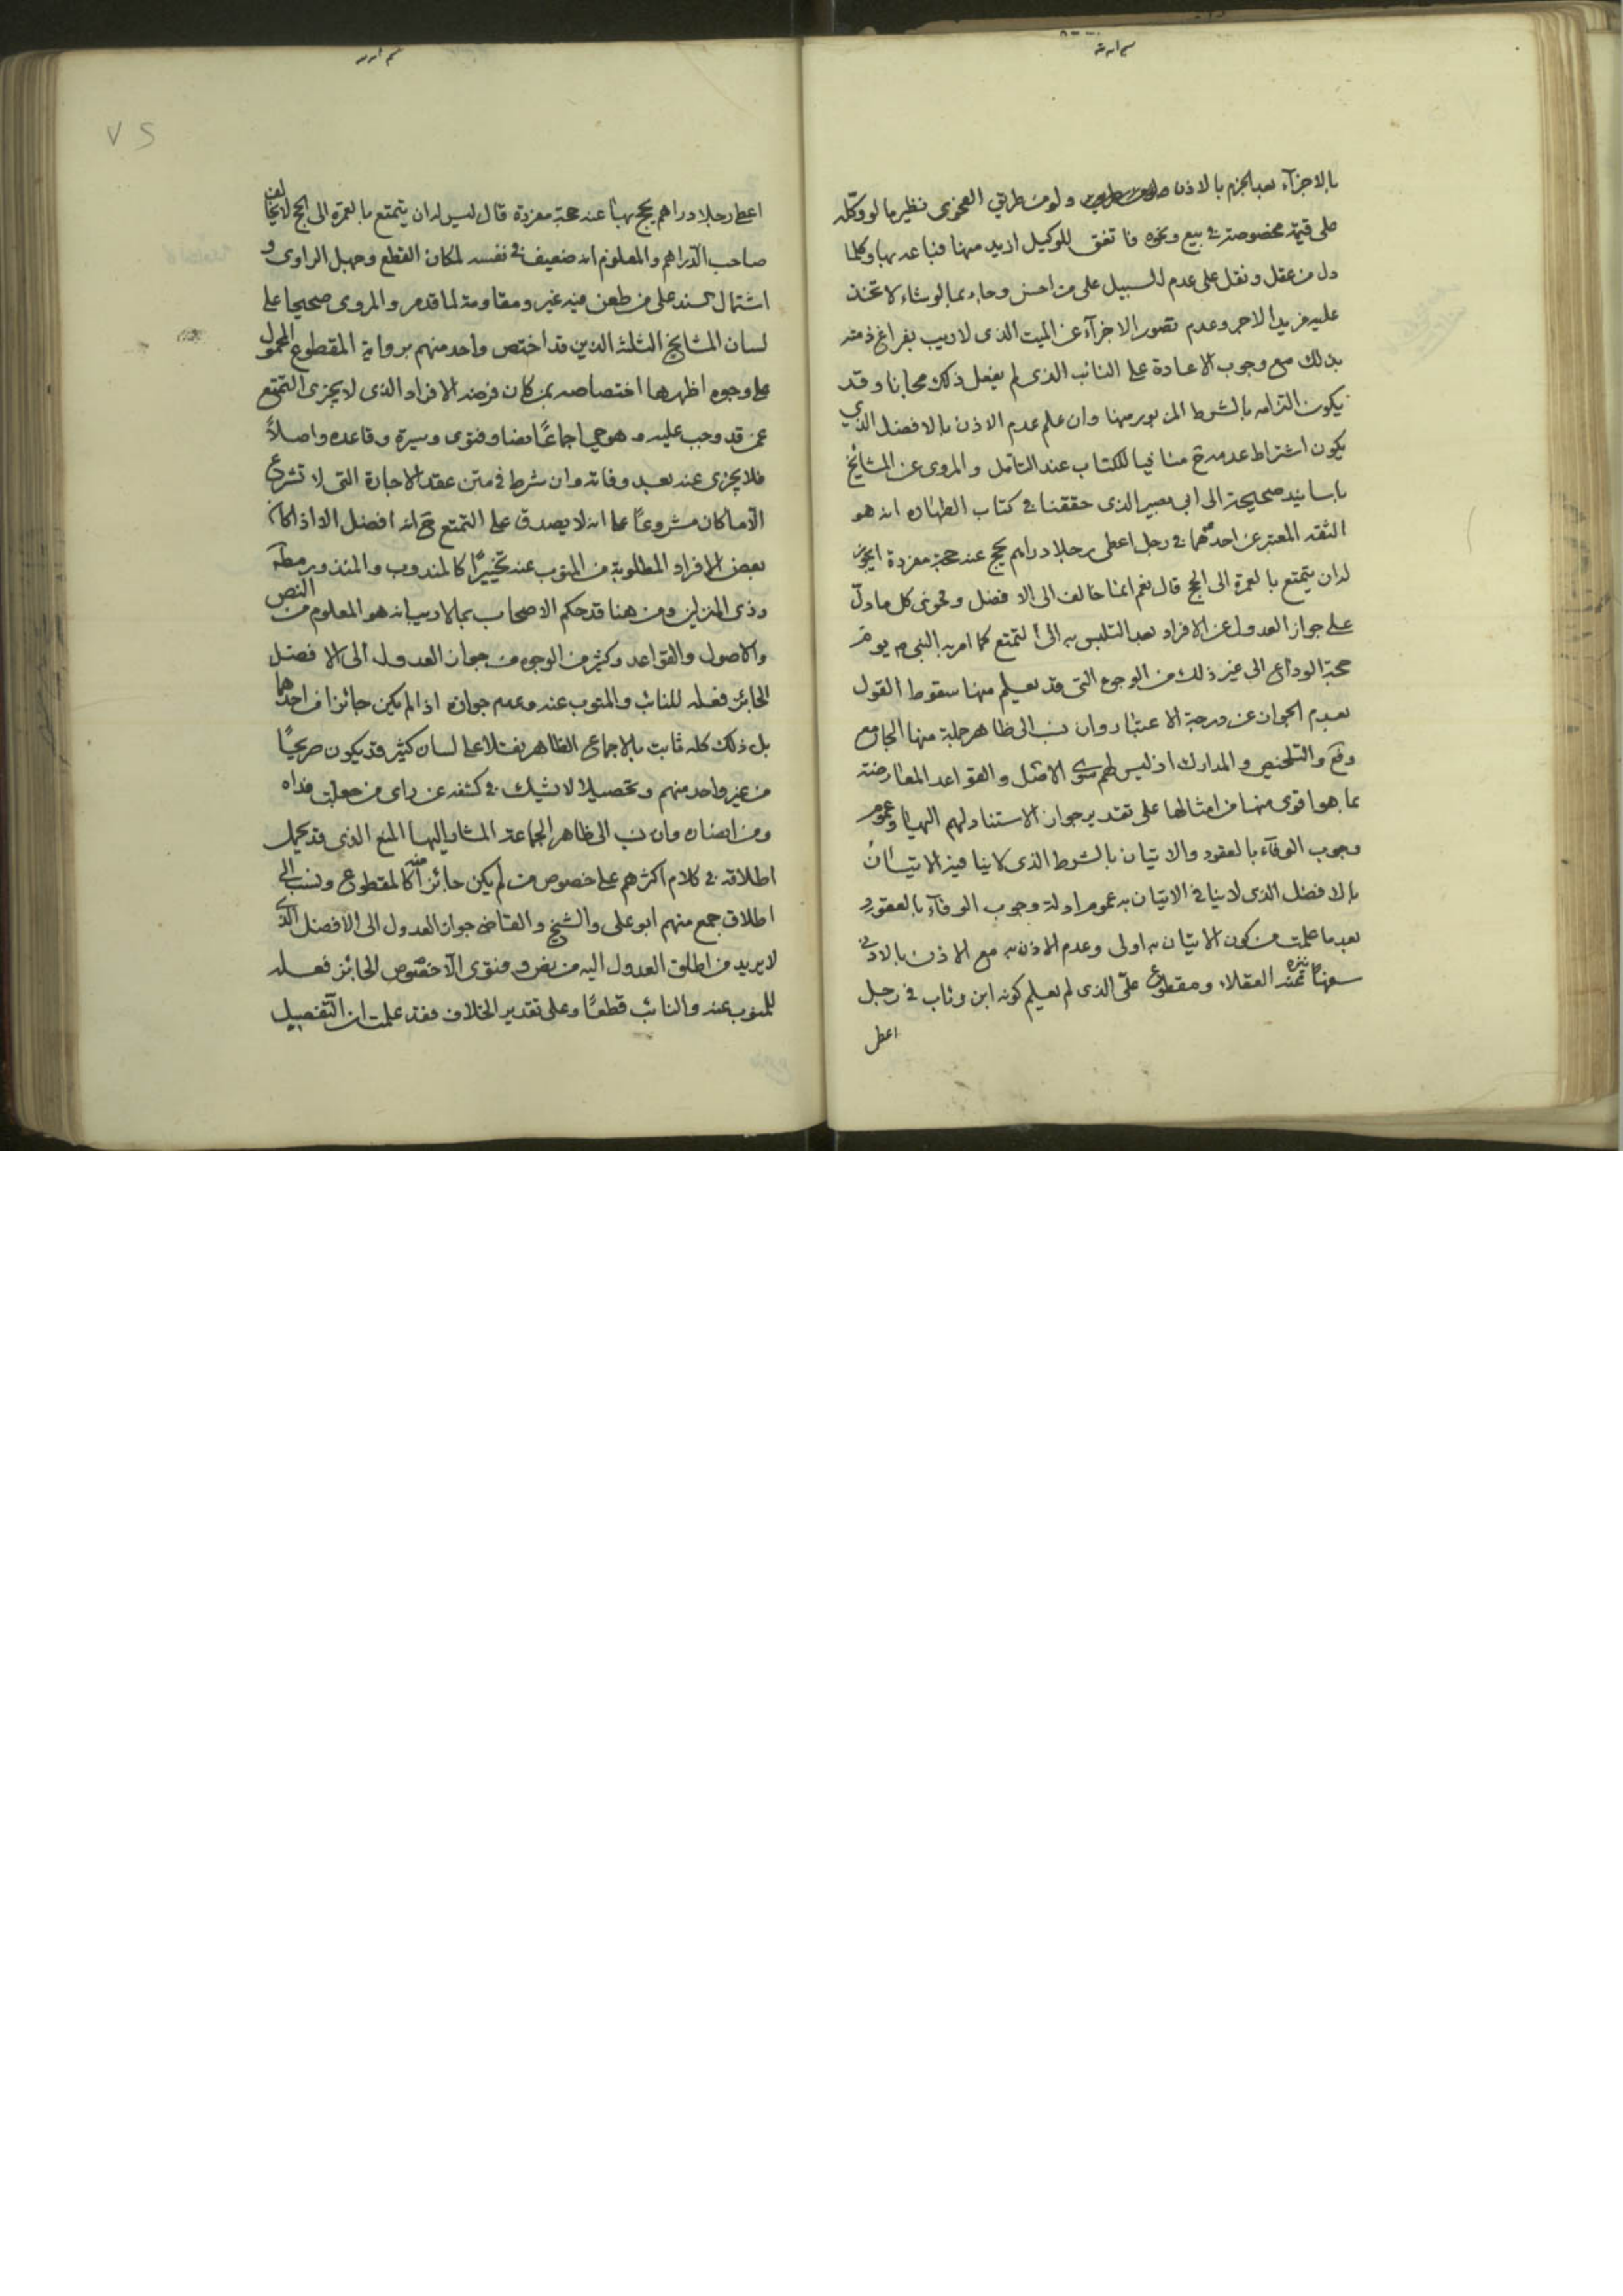 بالاجزآء بعد الجزم بالاذن ولو من طريق الفحوى نظير ما لو وكّله
على قيمة مخصوصة في بيع ونحوه فاتفق للوكيل ازيد منها فباعه بها وكلما
دل من عقل ونقل على عدم السبيل على من احسن وجاء بما لو شاء لاتخذ
عليه مزيد الاجر وعدم تصور الاجزآء عن الميت الذى لا ريب بفراغ ذمته
بذلك مع وجوب الاعادة على النائب الذى لم يفعل ذلك مجانا وقد
يكون التزامه بالشرط المزبور منها وان علم عدم الاذن بالافضل الذي
يكون اشتراط عدمه ح منافيا للكتاب عند التأمل والمروى عن المشائخ
باسانيد صحيحة الى ابى بصير الذى حققنا في كتاب الطهاره انه هو
الثقه المعتبر عن احدهما في رجل اعطى رجلا دراهم يحج عنه حجة مفردة ايجوز
له ان يتمتع بالعمرة الى الحج قال نعم انما خالف الى الافضل وفحوى كل ما دلّ
على جواز العدول عن الافراد بعد التلبس به الى التمتع كما امر به النبى ص يوم
حجة الوداع الى غير ذلك من الوجوه التى قد يعلم منها سقوط القول
بعدم الجواز عن درجة الاعتبار وان نسب الى ظاهر جملة منها الجامع
وفع والتلخيص والمدارك اذ ليس لهم سوى الاصل والقواعد المعارضة
بما هو اقوى منها من امثالها على تقدير جواز الاستناد لهم اليها وعموم
وجوب الوفآء بالعقود والاتيان بالشرط الذى لا ينافيه الاتيان
بالافضل الذى لا ينافي الاتيان به عموم ادلة وجوب الوفآء بالعقود
بعد ما علمت من كون الاتيان به اولى وعدم الاذن به مع الاذن بالادنى
العقلاء ومقطوع علىّ الذى لم يعلم كونه ابن رئاب في رجل
اعطى
اعطى رجلا دراهم يحج بها عنه حجة مفردة قال ليس له ان يتمتع بالعمرة الى الحج لا يخالف
صاحب الدّراهم والمعلوم انه ضعيف في نفسه لمكان القطع وجهل الراوى و
اشتمال السند على من طعن فيه غير ومقاومة لما قدم والمروى صحيحا على
لسان المشايخ الثلثة الذين قد اختص واحد منهم برواية المقطوع المحمول
على وجوه اظهرها اختصاصه بمن كان فرضه الافراد الذى لا يجزى التمتع
عمن قد وجب عليه وهو حي اجماعًا نصا وفتوى وسيرة وقاعدة واصلاً
فلا يجزى عنه بعد وفاته وان شرط في متن عقد الاجارة التى لا تشرع
الّا ما كان مشروعًا عما انه لا يصدق على التمتع ح انه افضل الا اذا كان
بعض الافراد المطلوبة من المنوب عنه تخييرًا كالمندوب والمنذور مطلقا
وذى المنزلين ومن هنا قد حكم الاصحاب بما لا ريب انه هو المعلوم من النص
والاصول والقواعد وكثير من الوجوه من جواز العدول الى الافضل
الجائز فعله للنائب والمنوب عنه وعدم جوازه اذا لم يكن جائزا من احدهما
بل ذلك كله ثابت بالاجماع الظاهر نقلا على لسان كثير قد يكون صريحًا
من غير واحد منهم وتحصيلا لا يشك في كشفه عن راى من جعلت فداه
ومن انصاره وان نسب الى ظاهر الجماعة المشار اليها المنع الذى قد يحمل
اطلاقه في كلام اكثرهم على خصوص من لم يكن جائزا منه كالمقطوع ونسب الى
اطلاق جمع منهم ابو على والشيخ والقاضى جواز العدول الى الافضل الذى
لا يريد من اطلق العدول اليه من نص وفتوى الّا خصوص الجائز فعله
للمنوب عنه والنائب قطعًا وعلى تقدير الخلاف فقد علمت ان التفصيل